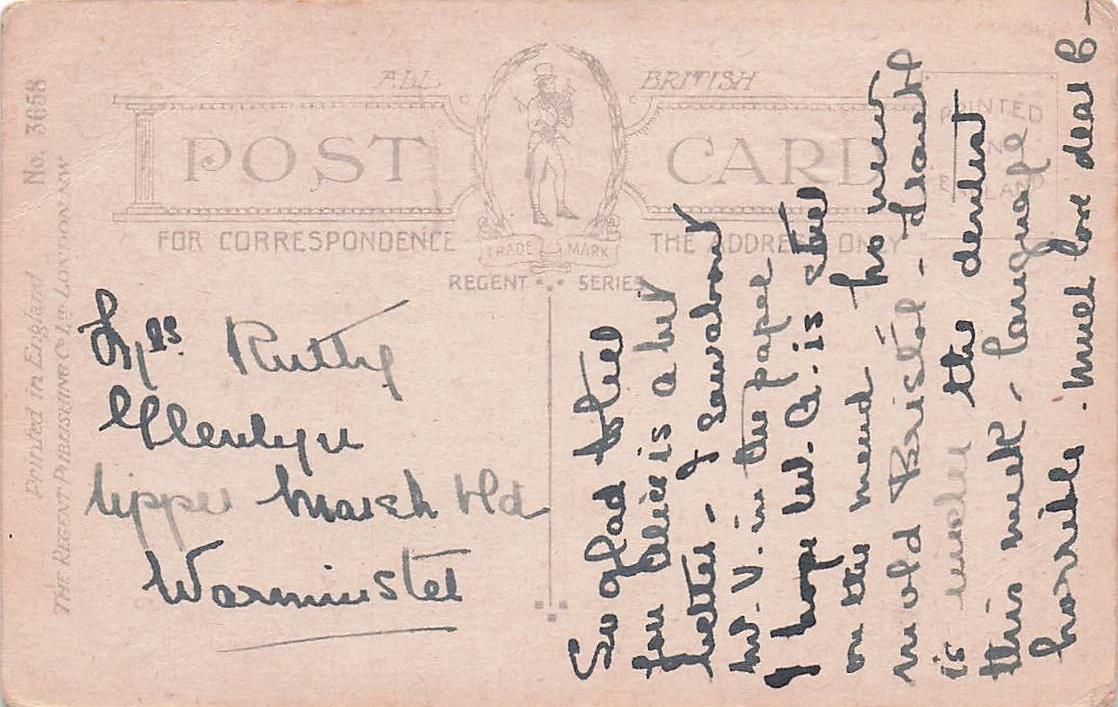 ALL BRITISH
POST CARD
FOR CORRESPONDENCE THE ADDRESS ONLY
TRADE MARK
REGENT SERIES
PRINTED
IN
ENGLAND
No. 3658
Printed in England
THE REGENT PUBLISHING Co Ltd LONDON NW
Mrs. Ruthy
Glenlyn
Upper Marsh Rd
Warminster
So glad to feel
you Alice is a bit
better - I saw about
Mr. V. in the paper
I hope Mr. A. is still
on the mend no news
in old Bristol -
is under the dentist
this week - language
horrible. Much love dear B -